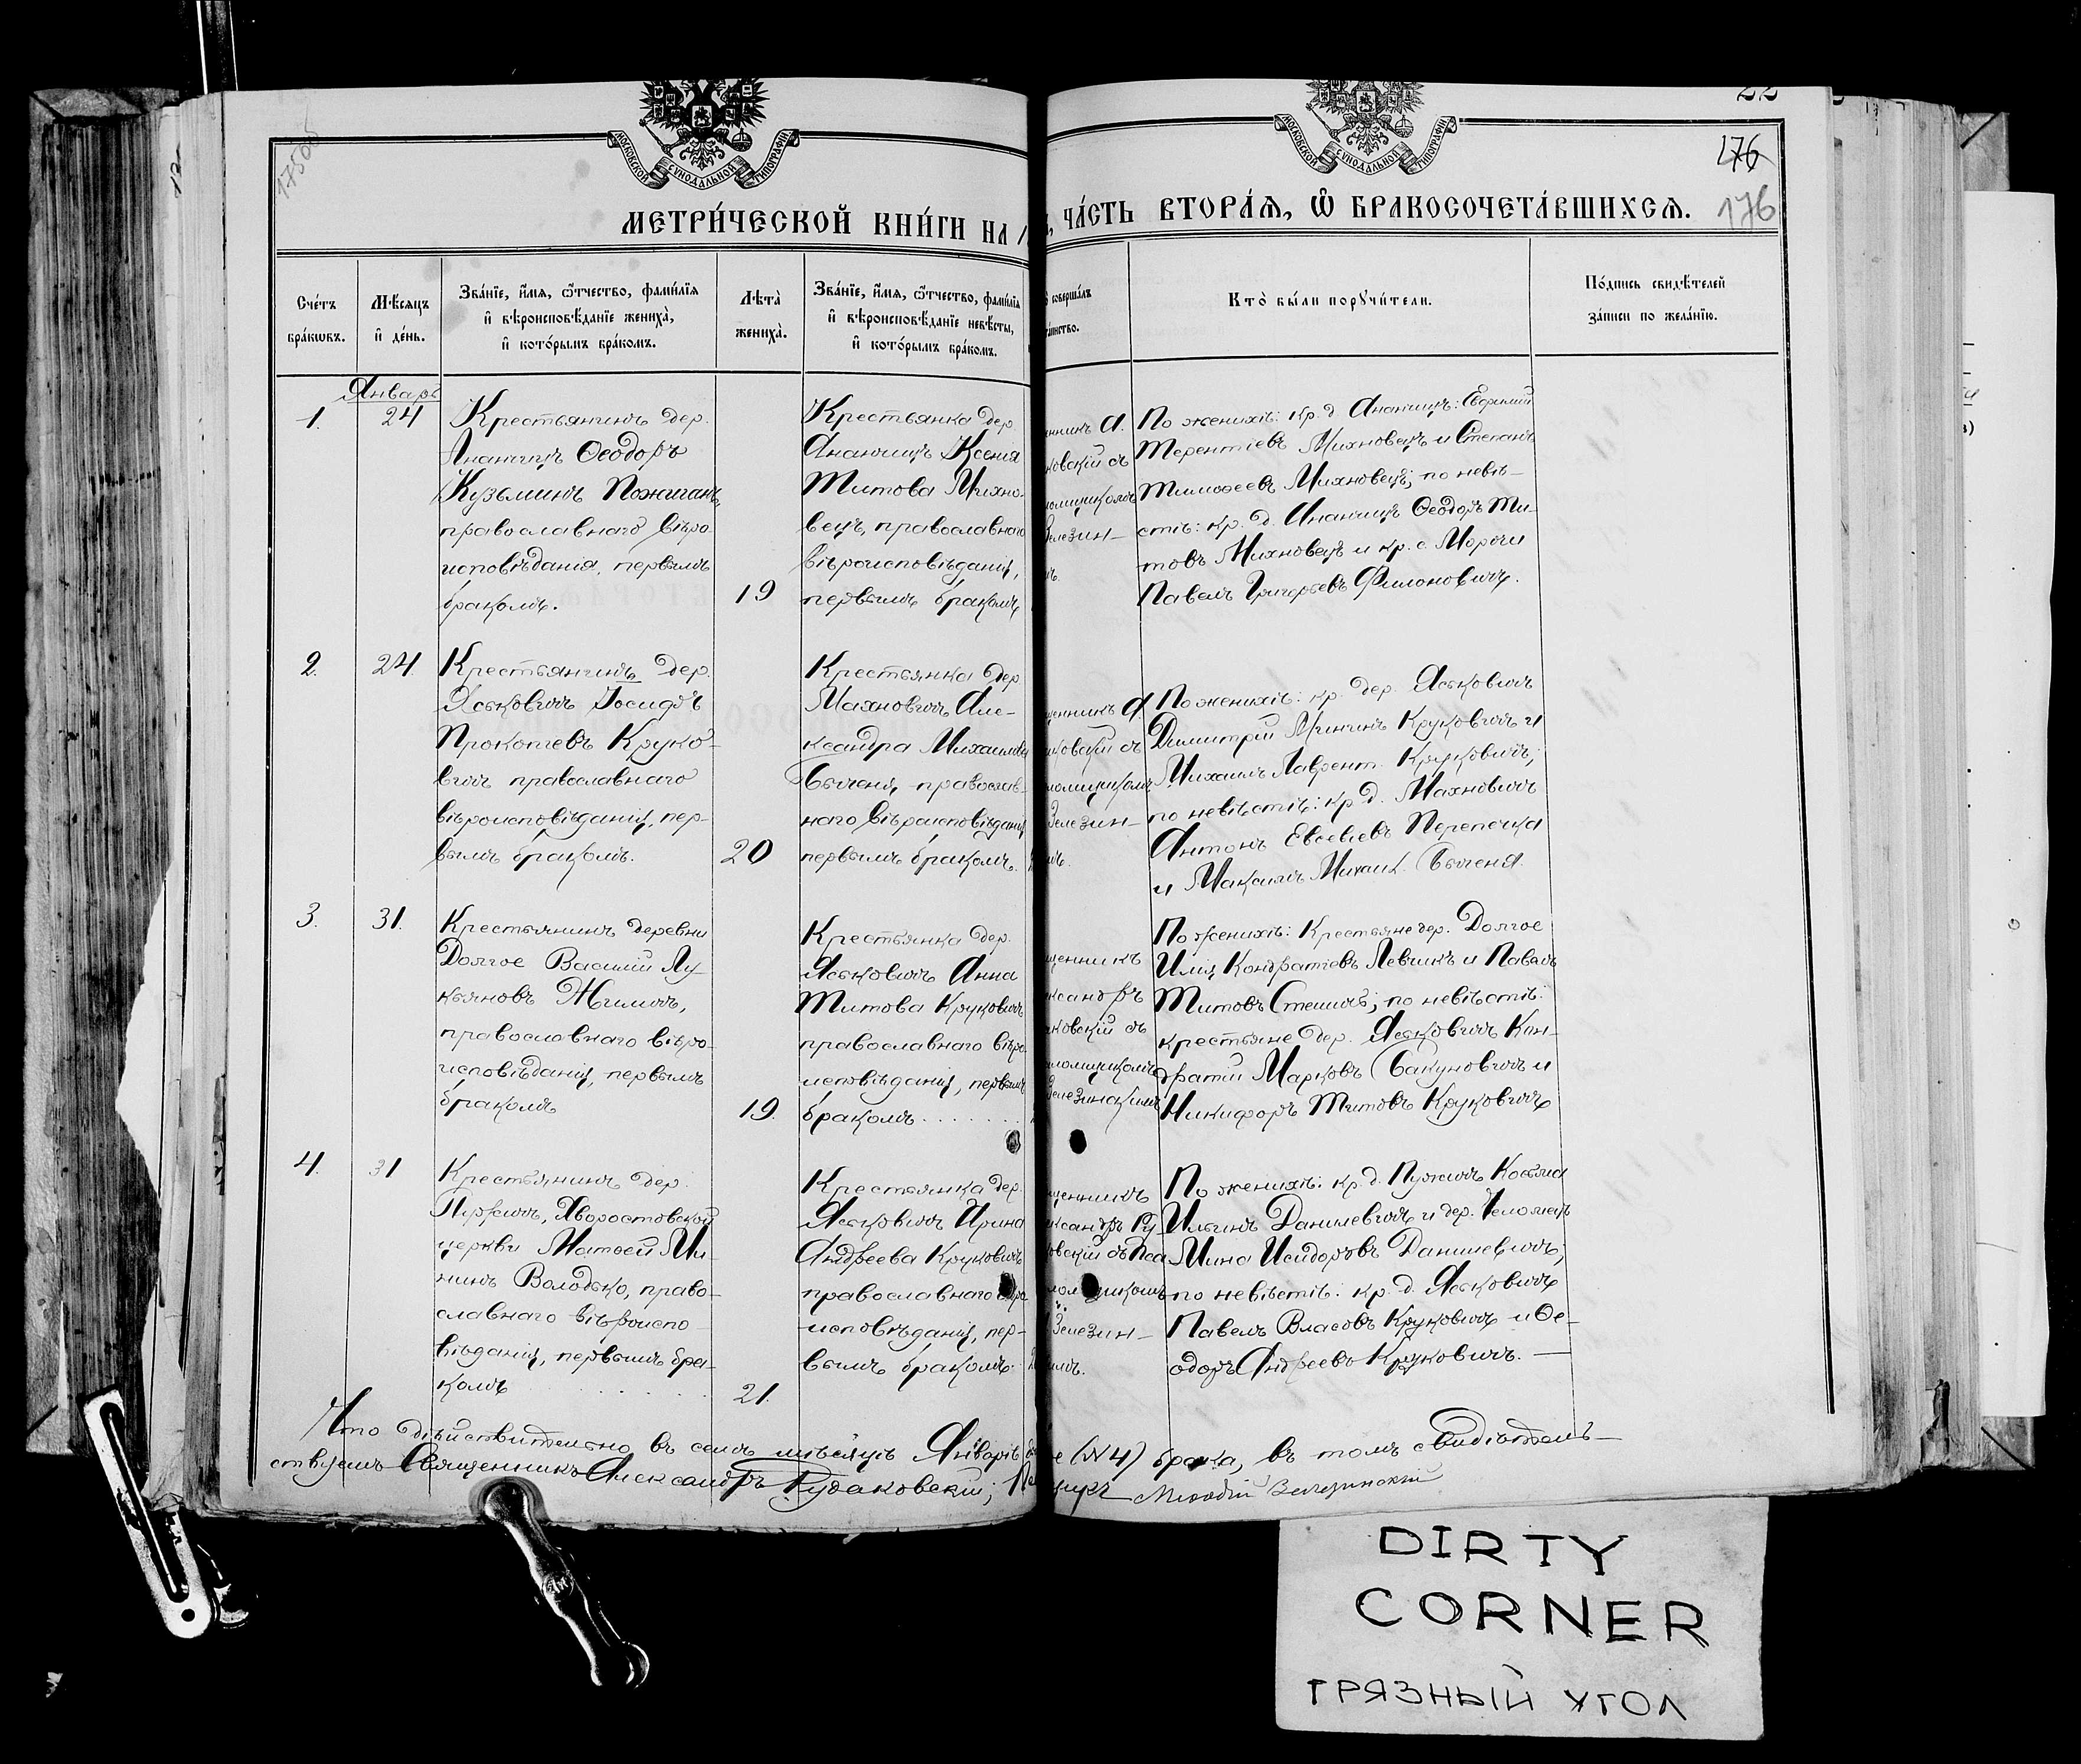 22
176
176
17505
МОСКОВСКОЙ СѴНОДАЛЬНОЙ ТИПОГРАФІИ
МОСКОВСКОЙ СѴНОДАЛЬНОЙ ТИПОГРАФІИ
МЕТРИ́ЧЕСКОЙ КНИ́ГИ НА
ЧА́СТЬ ВТОРА́Ѧ, Ѽ БРАКОСОЧЕТА́ВШИХСѦ.
Сче́тъ
бра́кωвъ.
Мѣ́сѧцъ
и҆ де́нь.
Зва́нїе, и҆́мѧ, ѻ҆́тчество, фами́лїѧ
и҆ вѣроисповѣ́данїе жениха̀,
и҆ кото́рымъ бра́комъ.
Лѣ́та
жениха̀.
Зва́нїе, и҆́мѧ, ѻ҆́тчество, фами́лїѧ
и҆ вѣроисповѣ́данїе невѣ́сты,
и҆ кото́рымъ бра́комъ.
соверша́лъ
та́инство.
Кто̀ бы́ли порꙋчи́тели.
По́дпись свидѣ́телей
за́писи по жела́нїю.
Январь
1.
24
Крестьянинъ дер.
Ананчицъ Ѳеодоръ
Кузьминъ Пожиганъ,
православнаго вѣро
исповѣданія, первымъ
бракомъ.
19
Крестьянка дер.
Ананчицъ Ксенія
Титова Михно-
вецъ, православнаго
вѣроисповѣданія,
первымъ бракомъ
нникъ А.
ковскій съ
ломщикомъ
Зелезин-
По женихѣ: кр. д. Ананчицъ: Евфимій
Терентіевъ Михновецъ и Степанъ
Тимоѳеевъ Михновецъ; по невѣ-
стѣ: кр. д. Ананчицъ Ѳеодоръ Ти-
товъ Михновецъ и кр. с. Морочи
Павелъ Григорьевъ Филоновичъ.
2.
24.
Крестьянинъ дер.
Яськовичъ Іосифъ
Прокопіевъ Круко-
вичъ православнаго
вѣроисповѣданія, пер-
вымъ бракомъ.
20
Крестьянка дер
Махновичъ Але-
ксандра Михаилова
Быченя, православ-
наго вѣроисповѣданія
первымъ бракомъ.
щенникъ А
ковскій съ
ломщикомъ
Зелезин-
По женихѣ: кр. дер. Яськовичъ
Димитрій Мининъ Круковичъ и
Михаилъ Лаврент. Круковичъ;
по невѣстѣ: кр. д. Махновичъ
Антонъ Евсевіевъ Перепечка
и Максимъ Михаил. Быченя.
3.
31.
Крестьянинъ деревни
Долгое Василій Лу-
кьяновъ Жиличъ,
православнаго вѣро-
исповѣданія, первымъ
бракомъ
19.
Крестьянка дер.
Яськовичъ Анна
Титова Круковичъ
православнаго вѣро-
исповѣданія, первымъ
бракомъ . . . . . . .
щенникъ
ксандръ
ковскій съ
ломщикомъ
Зелезинскимъ
По женихѣ: Крестьяне дер. Долгое
Илія Кондратіевъ Левчикъ и Павелъ
Титовъ Стешицъ; по невѣстѣ:
крестьяне дер. Яськовичъ Кон-
дратій Марковъ Бакуновичъ и
Никифоръ Титовъ Круковичъ
4.
31
Крестьянинъ дер.
Пужичъ, Хворостовской
церкви Матѳей Ми-
нинъ Володько, право-
славнаго вѣроиспо-
вѣданія, первымъ бра-
комъ
21.
Крестьянка дер.
Яськовичъ Ирина
Андреева Круковичъ
православнаго вѣро
исповѣданія, пер-
вымъ бракомъ.
щенникъ
ксандръ Ру
овскій съ Пса
ломщикомъ
Зелезин-
По женихѣ: кр. д. Пужичъ Косьма
Ильинъ Данилевичъ и дер. Челонецъ
Мина Исидоровъ Данилевичъ;
по невѣстѣ: кр. д. Яськовичъ
Павелъ Власовъ Круковичъ и Ѳе-
одоръ Андреевъ Круковичъ. —
Что дѣйствительно въ семъ мѣсяцѣ Январѣ (№4) брака, въ томъ свидѣтель-
ствуемъ Священникъ Александръ Рудаковскій; Меѳодій Зелезинскій
DIRTY
CORNER
ГРЯЗНЫЙ УГОЛ